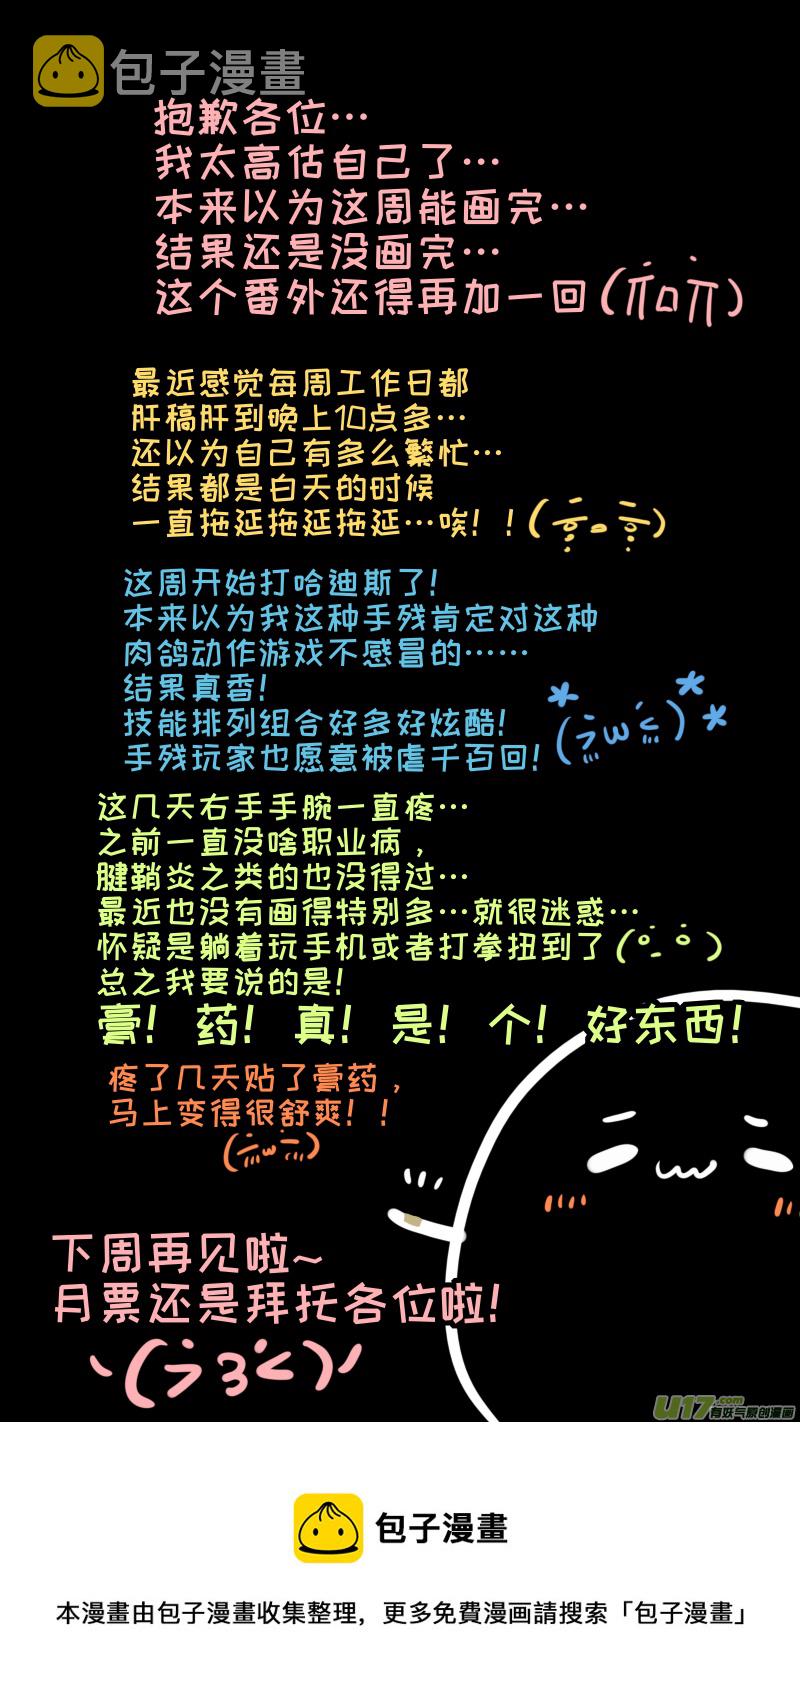 包子漫畫
抱歉各位…
我太高估自己了…
本来以为这周能画完…
结果还是没画完…
这个番外还得再加一回
最近感觉每周工作日都
肝稿肝到晚上10点多…
还以为自己有多么繁忙…
结果都是白天的时候
一直拖延拖延拖延…唉！！
这周开始打哈迪斯了！
本来以为我这种手残肯定对这种
肉鸽动作游戏不感冒的……
结果真香！
技能排列组合好多好炫酷！
手残玩家也愿意被虐千百回！
这几天右手手腕一直疼…
之前一直没啥职业病，
腱鞘炎之类的也没得过…
最近也没有画得特别多…就很迷惑…
怀疑是躺着玩手机或者打拳扭到了
总之我要说的是！
膏！药！真！是！个！好东西！
疼了几天贴了膏药，
马上变得很舒爽！！
下周再见啦~
月票还是拜托各位啦！
U17.com
有妖气原创漫画
包子漫畫
本漫畫由包子漫畫收集整理，更多免費漫画請搜索「包子漫畫」